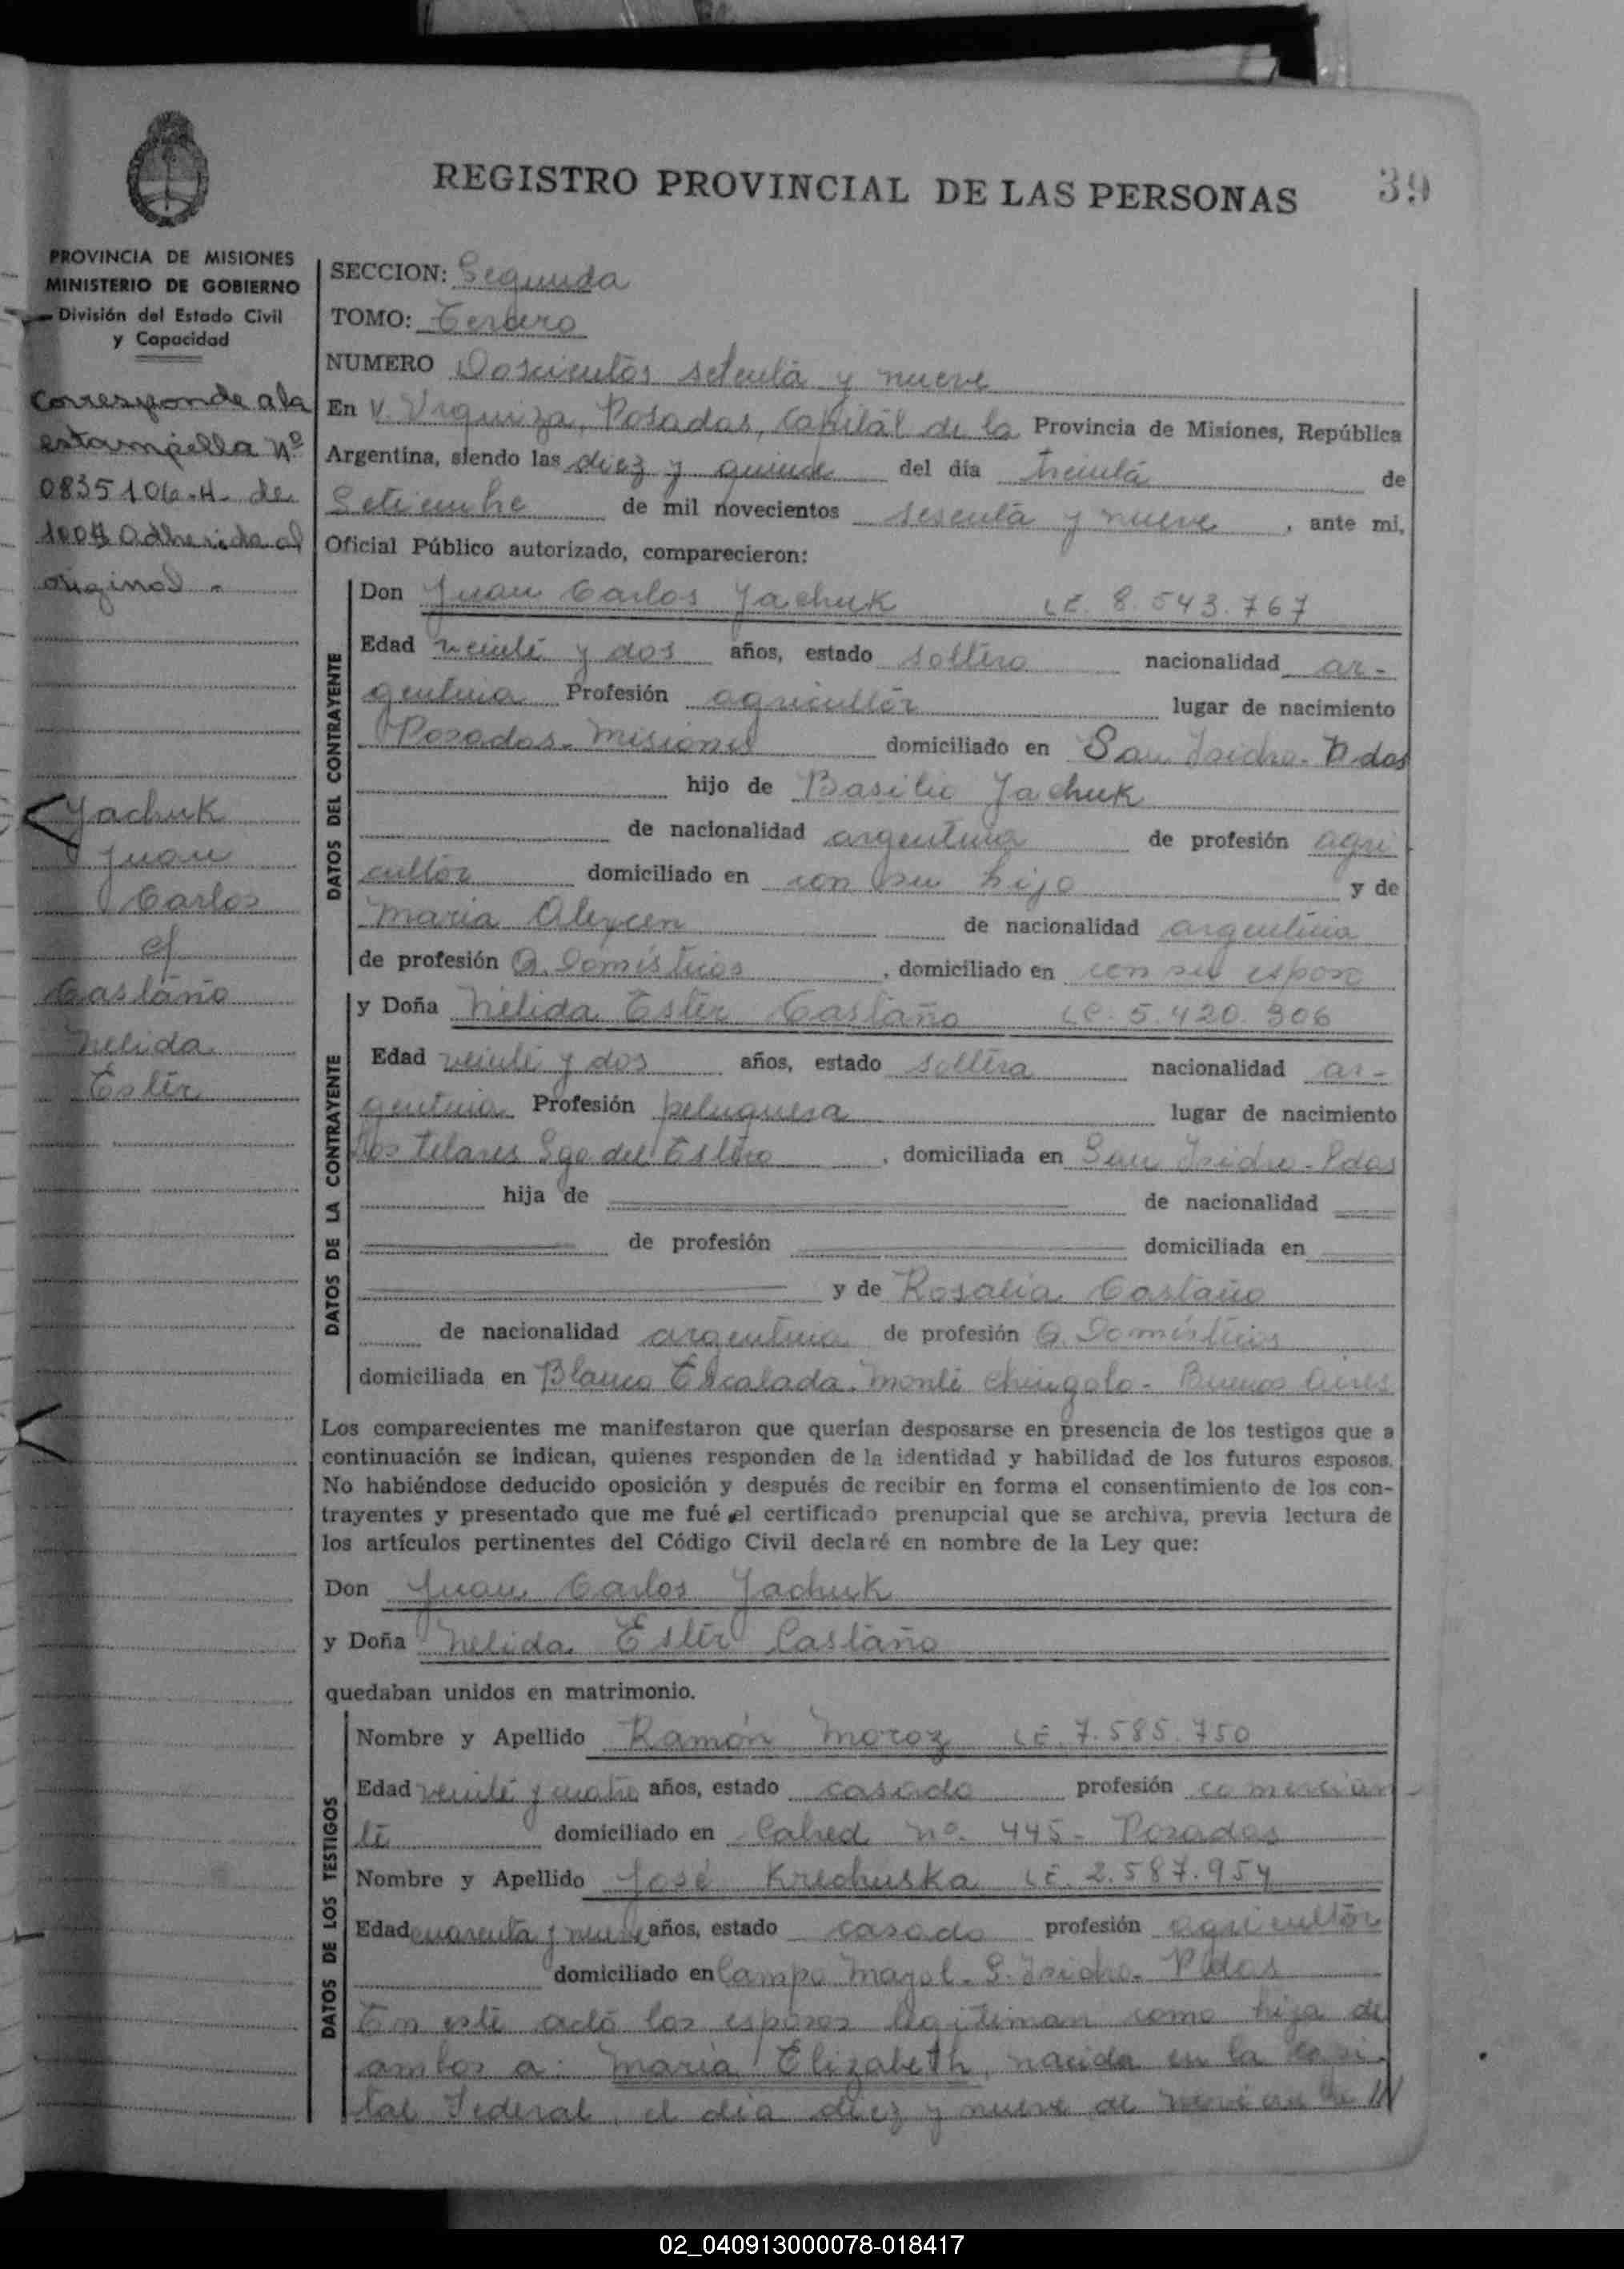 REGISTRO PROVINCIAL DE LAS PERSONAS
39
PROVINCIA DE MISIONES
MINISTERIO DE GOBIERNO
División del Estado Civil
y Capacidad
Corresponde a la
estampilla Nº
0835106-H- de
100$ Adherida al
original -
Yachuk
Juan
Carlos
c/
Castaño
Nelida
Ester
SECCION: Segunda
TOMO: Tercero
NUMERO Doscientos setenta y nueve
En V. Urquiza, Posadas, capital de la Provincia de Misiones, República
Argentina, siendo las diez y quince del día treinta de
Setiembre de mil novecientos sesenta y nueve, ante mi,
Oficial Público autorizado, comparecieron:
DATOS DEL CONTRAYENTE
Don Juan Carlos Yachuk LE. 8.543.767
Edad veinte y dos años, estado soltero nacionalidad ar-
gentina Profesión agricultor lugar de nacimiento
Posadas - Misiones domiciliado en San Isidro - Pdas
hijo de Basilio Yachuk
de nacionalidad argentina de profesión agri
cultor domiciliado en con su hijo y de
Maria de nacionalidad argentina
de profesión Q. Domésticos, domiciliado en con su esposo
DATOS DE LA CONTRAYENTE
y Doña Nélida Ester Castaño LC. 5.420.906
Edad veinte y dos años, estado soltera nacionalidad ar-
gentina Profesión peluquera lugar de nacimiento
Los Telares Sgo del Estero, domiciliada en San Isidro - Pdas
hija de de nacionalidad
de profesión domiciliada en
y de Rosalia Castaño
de nacionalidad argentina de profesión Q. Domésticos
domiciliada en Blanco Escalada. Monte Chingolo - Buenos Aires
Los comparecientes me manifestaron que querían desposarse en presencia de los testigos que a
continuación se indican, quienes responden de la identidad y habilidad de los futuros esposos.
No habiéndose deducido oposición y después de recibir en forma el consentimiento de los con-
trayentes y presentado que me fué el certificado prenupcial que se archiva, previa lectura de
los artículos pertinentes del Código Civil declaré en nombre de la Ley que:
Don Juan Carlos Yachuk
y Doña Nelida Ester Castaño
quedaban unidos en matrimonio.
DATOS DE LOS TESTIGOS
Nombre y Apellido Ramón Moroz LE. 7.585.750
Edad veinte y cuatro años, estado casado profesión comercian-
te domiciliado en Cabred nº. 445 - Posadas
Nombre y Apellido José Krechuska LE. 2.587.954
Edad cuarenta y nueve años, estado casado profesión agricultor
domiciliado en Campo Mayol - S. Isidro - Pdas
En este acto los esposos legitiman como hija de
ambos a: Maria Elizabeth, nacida en la Capi-
tal Federal, el dia diez y nueve de
02_040913000078-018417